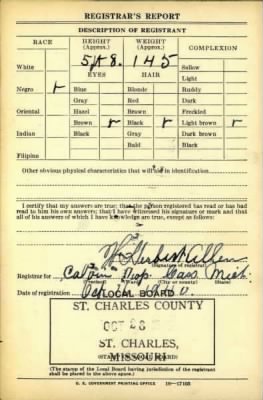 REGISTRAR'S REPORT
DESCRIPTION OF REGISTRANT
RACE
HEIGHT
(Approx.)
WEIGHT
(Approx.)
COMPLEXION
White
5 ft 8.
145
Sallow
EYES
HAIR
Light
Negro
Blue
Blonde
Ruddy
Gray
Red
Dark
Oriental
Hazel
Brown
Freckled
Brown
Black
Light brown
Indian
Black
Gray
Dark brown
Bald
Black
Filipino
Other obvious physical characteristics that will aid in identification
I certify that my answers are true; that the person registered has read or has had
read to him his own answers; that I have witnessed his signature or mark and that
all of his answers of which I have knowledge are true, except as follows:
(Signature of registrar)
Registrar for Calvin Twp. Cass Mich.
(Precinct) (Ward) (City or county) (State)
Date of registration
LOCAL BOARD
ST. CHARLES COUNTY
OCT 28
ST. CHARLES,
MISSOURI
(The stamp of the Local Board having jurisdiction of the registrant
shall be placed in the above space.)
U. S. GOVERNMENT PRINTING OFFICE 16—17105